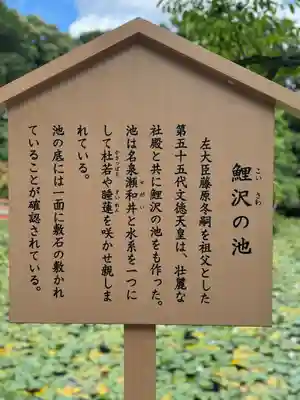 鯉沢の池
こいさわ
左大臣藤原冬嗣を祖父とした
第五十五代文徳天皇は、壮麗な
社殿と共に鯉沢の池をも作った。
池は名泉瀬和井と水系を一つに
せがい
して杜若や睡蓮を咲かせ親しま
かきつばた すいれん
れている。
池の底には一面に敷石の敷かれ
ていることが確認されている。